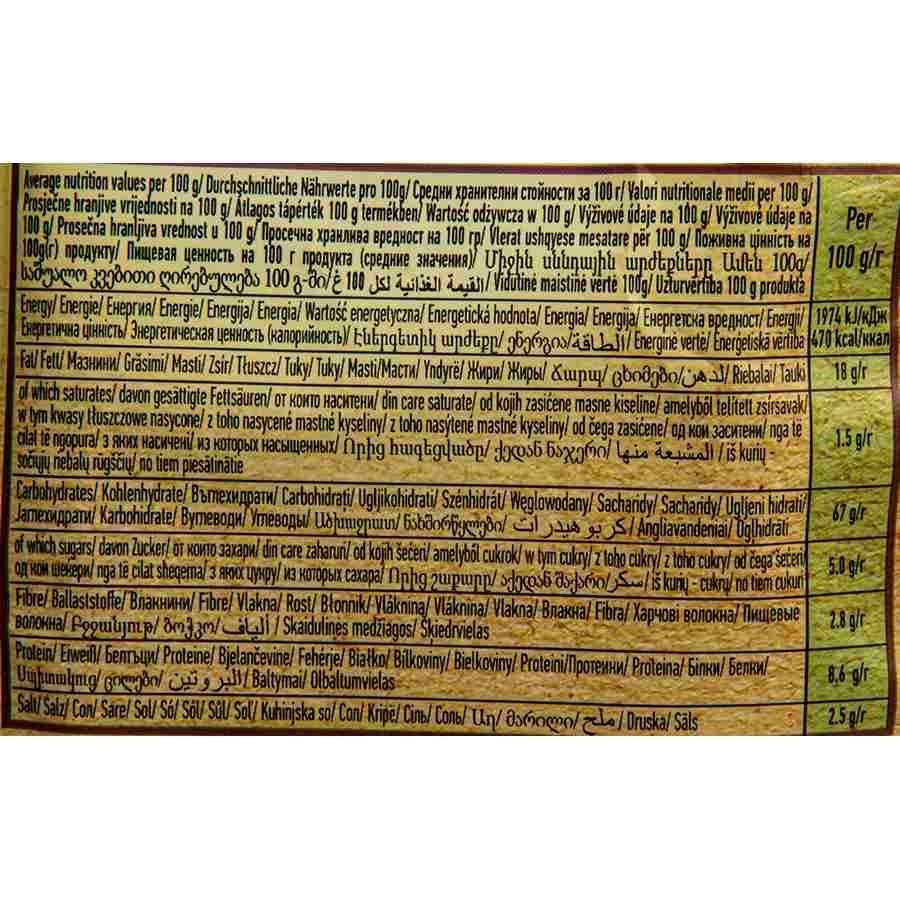 Average nutrition values per 100 g/ Durchschnittliche Nährwerte pro 100g/ Средни хранителни стойности за 100 г/ Valori nutritionale medii per 100 g/
Prosječne hranjive vrijednosti na 100 g/ Átlagos tápérték 100 g termékben/ Wartość odżywcza w 100 g/ Výživové údaje na 100 g/ Výživové údaje na
100 g/ Prosečna hranljiva vrednost u 100 g/ Просечна хранлива вредност на 100 гр/ Vlerat ushqyese mesatare për 100 g/ Поживна цінність на
100g(г) продукту/ Пищевая ценность на 100 г продукта (средние значения)/ Միջին սննդային արժեքները Ամեն 100գ/
საშუალო კვებითი ღირებულება 100 გ-ში/ القيمة الغذائية لكل 100 غ/ Vidutinė maistinė vertė 100g/ Uzturvērtība 100 g produkta
Per
100 g/г
Energy/ Energie/ Енергия/ Energie/ Energija/ Energia/ Wartość energetyczna/ Energetická hodnota/ Energia/ Energija/ Енергетска вредност/ Energji/
Енергетична цінність/ Энергетическая ценность (калорийность)/ Էներգետիկ արժեքը/ ენერგია/ الطاقة/ Energinė vertė/ Enerģētiskā vērtība
1974 kJ/кДж
470 kcal/ккал
Fat/ Fett/ Мазнини/ Grăsimi/ Masti/ Zsír/ Tłuszcz/ Tuky/ Tuky/ Masti/Масти/ Yndyrë/ Жири/ Жиры/ Ճարպ/ ცხიმები/ لدهن/ Riebalai/ Tauki
18 g/г
of which saturates/ davon gesättigte Fettsäuren/ от които наситени/ din care saturate/ od kojih zasićene masne kiseline/ amelyből telített zsírsavak/
w tym kwasy tłuszczowe nasycone/ z toho nasycené mastné kyseliny/ z toho nasýtené mastné kyseliny/ od čega zasićene/ од кои заситени/ nga të
cilat të ngopura/ з яких насичені/ из которых насыщенных/ Որից հագեցվածը/ ქედან ნაჯერი/ المشبعة منها / iš kurių -
sočiųjų riebalų rūgščių/ no tiem piesātinātie
1.5 g/г
Carbohydrates/ Kohlenhydrate/ Въглехидрати/ Carbohidrati/ Ugljikohidrati/ Szénhidrát/ Węglowodany/ Sacharidy/ Sacharidy/ Ugljeni hidrati/
Јаглехидрати/ Karbohidrate/ Вуглеводи/ Углеводы/ Ածխաջրատ/ ნახშირწყლები/ كربوهيدرات/ Angliavandeniai/ Ogļhidrāti
67 g/г
of which sugars/ davon Zucker/ от които захари/ din care zaharuri/ od kojih šećeri/ amelyből cukrok/ w tym cukry/ z toho cukry/ z toho cukry/ od čega šećeri/
од кои шекери/ nga të cilat sheqerna/ з яких цукру/ из которых сахара/ Որից շաքարը/ აქედან შაქარი/ سكر/ iš kurių - cukrų/ no tiem cukuri
5.0 g/г
Fibre/ Ballaststoffe/ Влакнини/ Fibre/ Vlakna/ Rost/ Błonnik/ Vláknina/ Vláknina/ Vlakna/ Влакна/ Fibra/ Харчові волокна/ Пищевые
волокна/ Բջջանյութ/ ბოჭკო/ ألياف / Skaidulinės medžiagos/ Šķiedrvielas
2.8 g/г
Protein/ Eiweiß/ Белтъци/ Proteine/ Bjelančevine/ Fehérje/ Białko/ Bílkoviny/ Bielkoviny/ Proteini/Протеини/ Proteina/ Білки/ Белки/
Սպիտակուց/ ცილები/ البروتين / Baltymai/ Olbaltumvielas
8,6 g/г
Salt/ Salz/ Сол/ Sare/ Sol/ Só/ Sól/ Sůl/ Soľ/ Kuhinjska so/ Сол/ Kripë/ Сіль/ Соль/ Աղ/ მარილი/ ملح / Druska/ Sāls
2.5 g/г